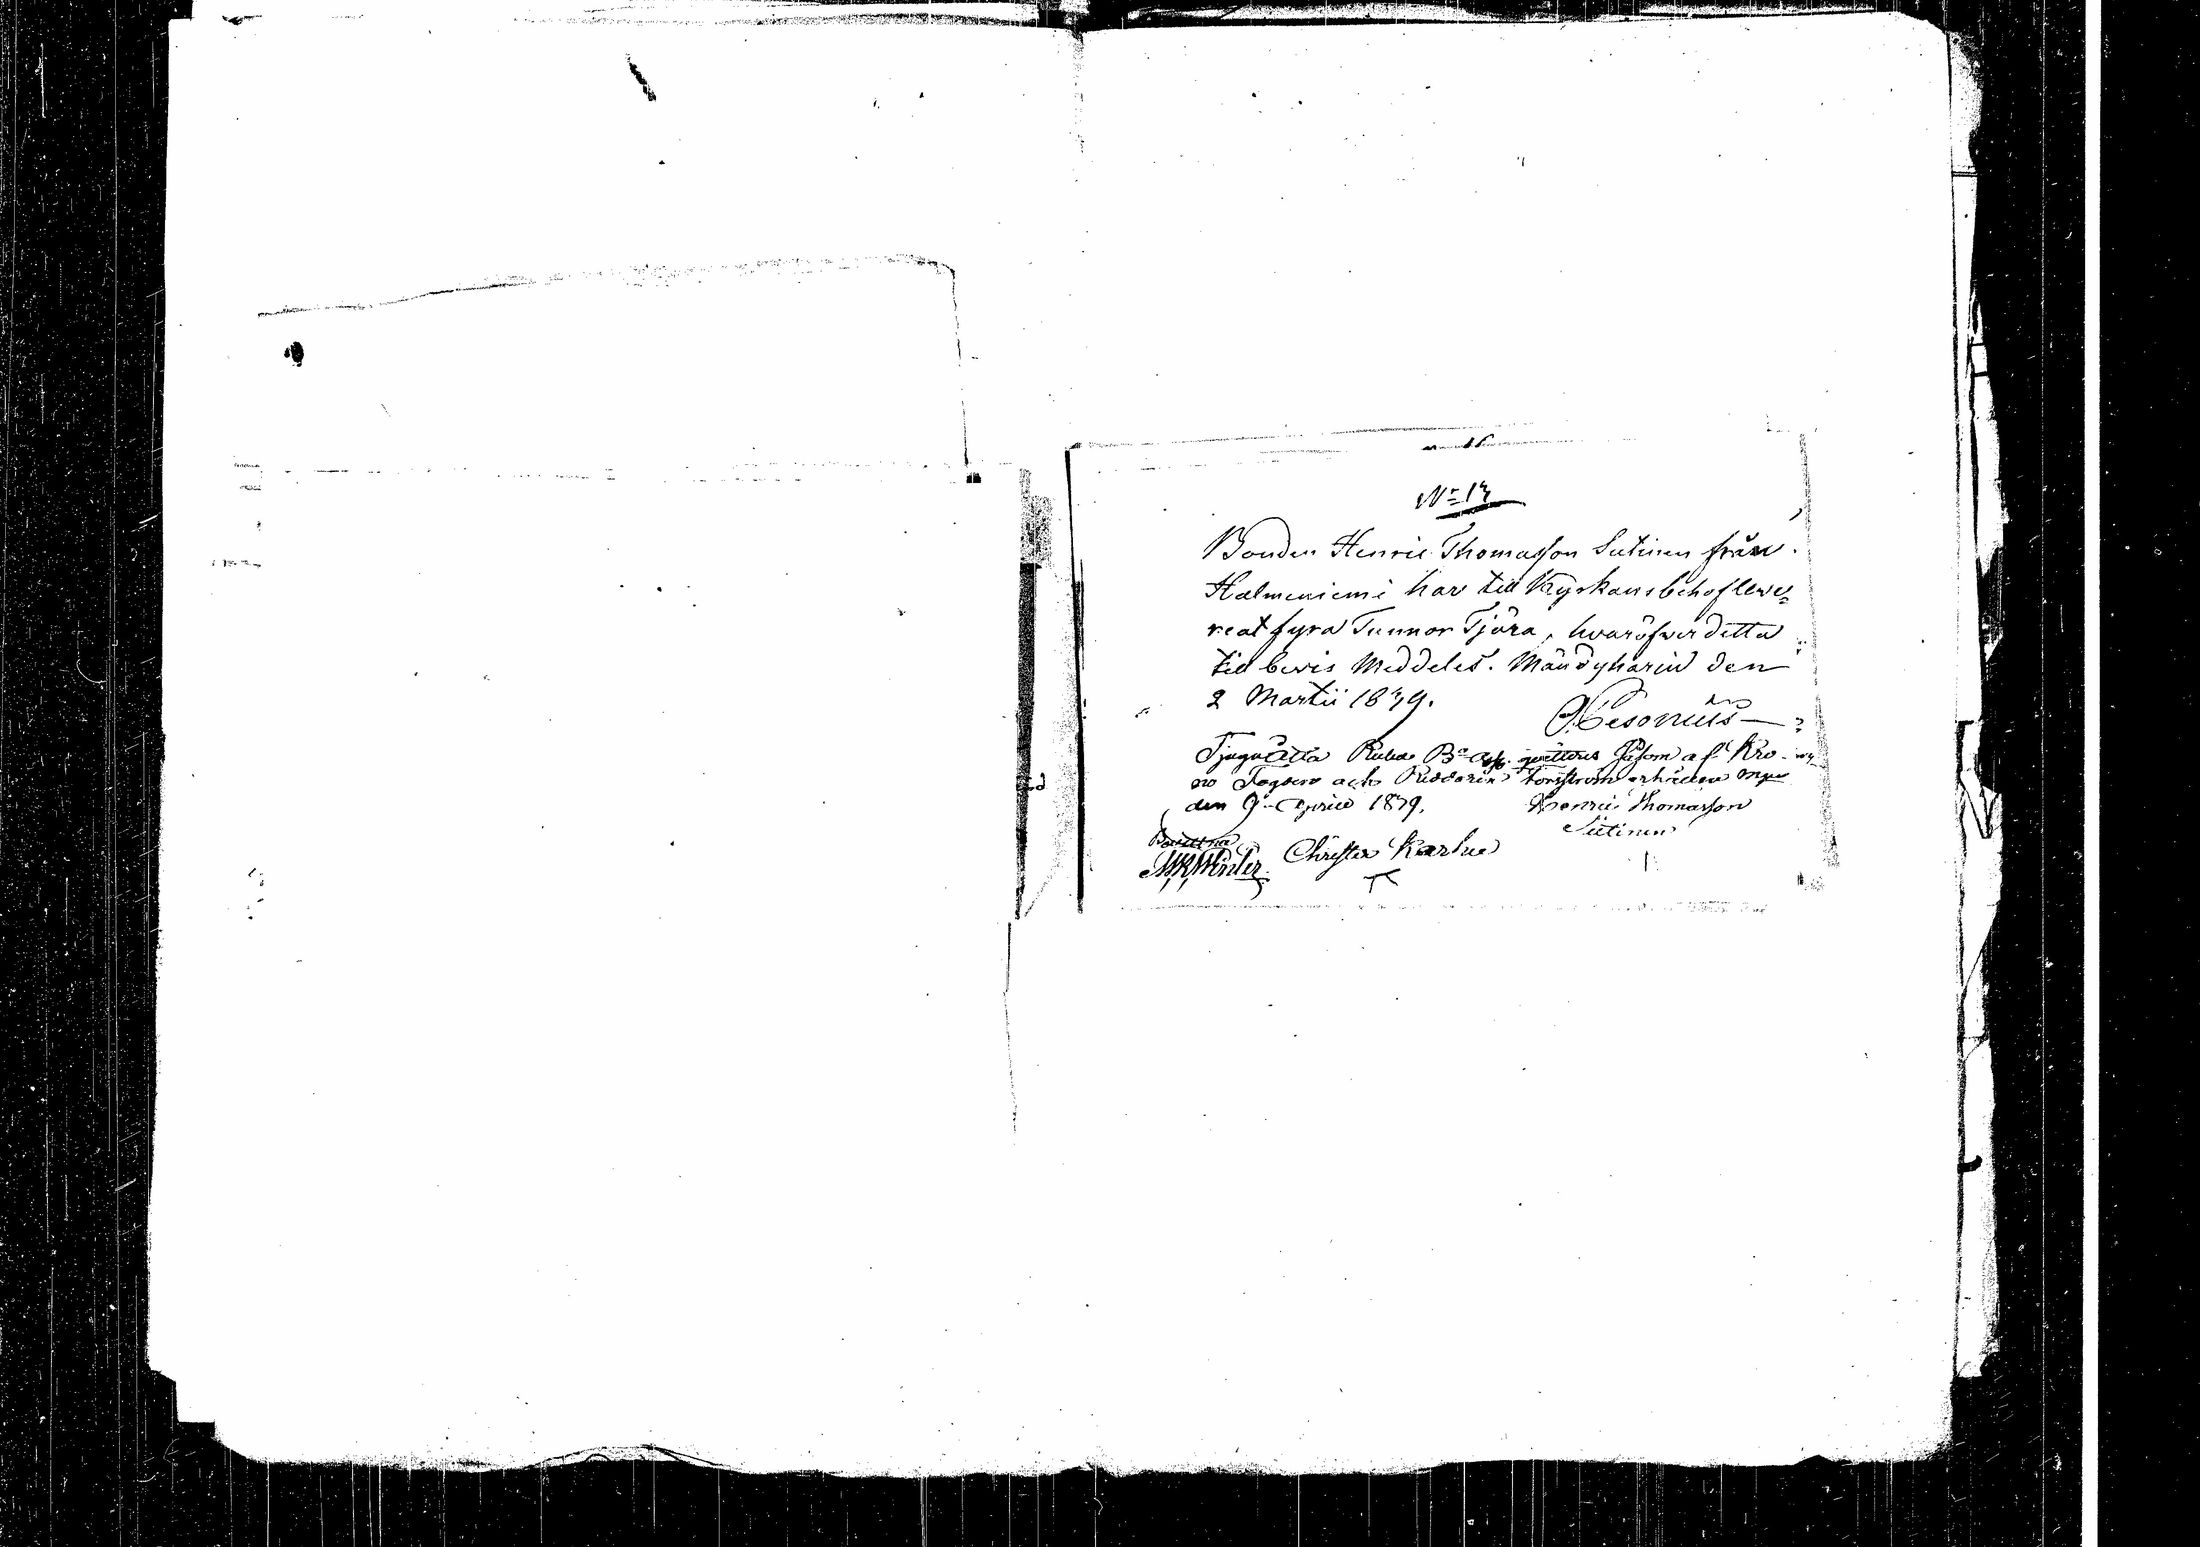 N:r 13
Bonden Henric Thomasson Sutinen från
Halmeniemi har till Kyrkans behof lewe=
reat fyra Tunnor Tjära, hvaröfwer detta
till bevis meddeles. Mändyharju den
2 Martii 1839.
Tjugu åtta Rubel B:co Ass. qvitteras såsom af Kro-
no Fogden och Riddaren Forsström erhållen
den 9 Aprill 1839. Henric Thomasson
Sutinen
Bevittna
Christer Karhu